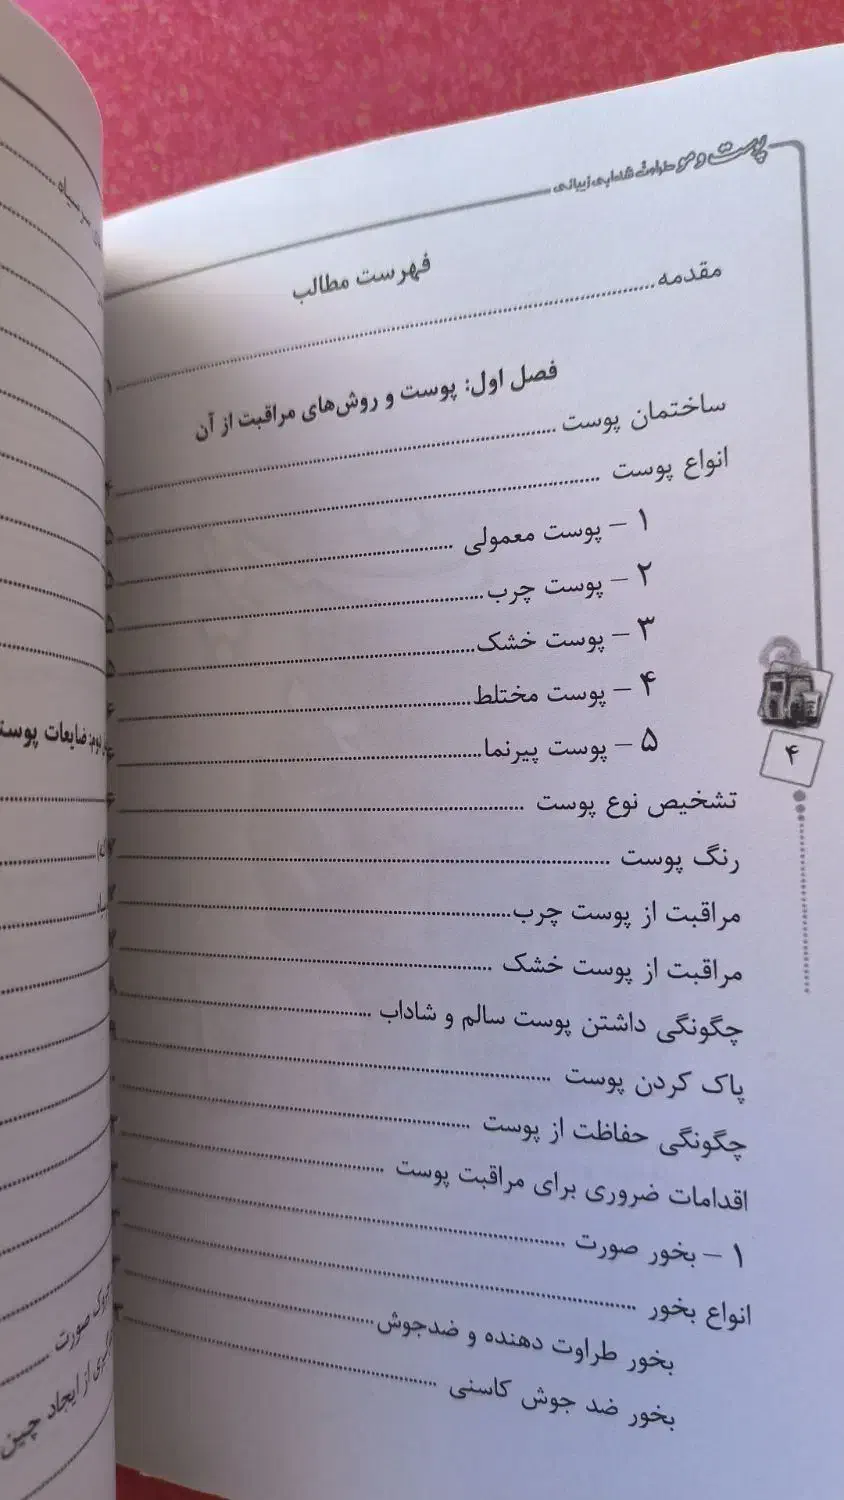 پوست و مو طراوت شادابی زیبائی
فهرست مطالب
مقدمه
فصل اول: پوست و روش‌های مراقبت از آن
ساختمان پوست
انواع پوست
۱ – پوست معمولی
۲ – پوست چرب
۳ – پوست خشک
۴ – پوست مختلط
۵ – پوست پیرنما
تشخیص نوع پوست
رنگ پوست
مراقبت از پوست چرب
مراقبت از پوست خشک
چگونگی داشتن پوست سالم و شاداب
پاک کردن پوست
چگونگی حفاظت از پوست
اقدامات ضروری برای مراقبت پوست
۱ – بخور صورت
انواع بخور
بخور طراوت دهنده و ضدجوش
بخور ضد جوش کاسنی
۴
سرسیاه
ضایعات پوست
صورت
از ایجاد چین